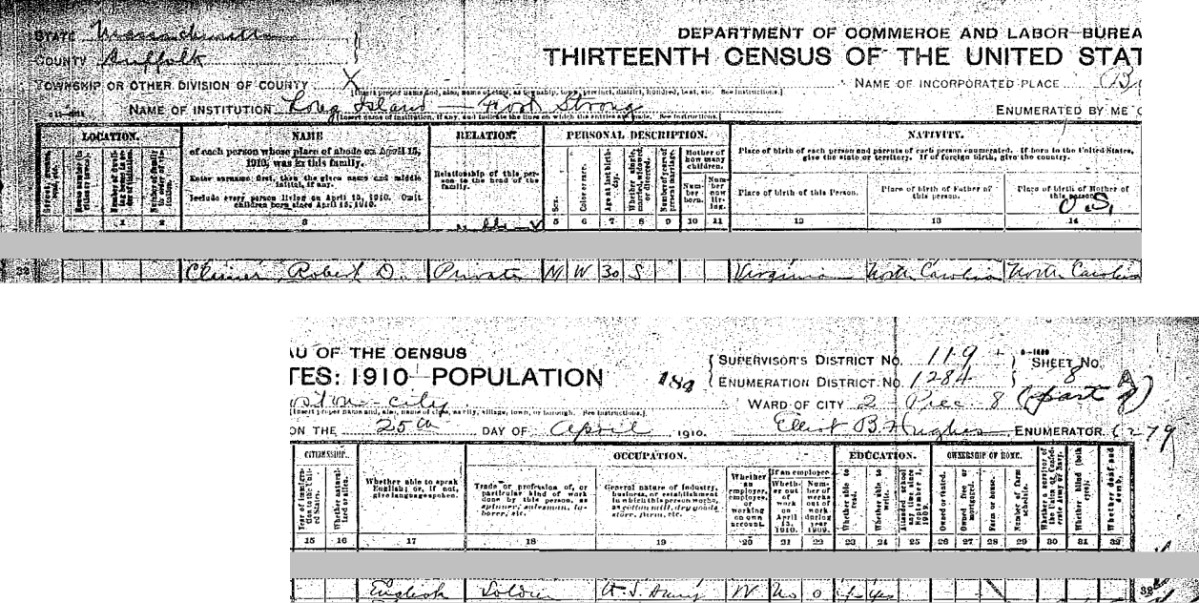 DEPARTMENT OF COMMERCE AND LABOR—BUREA
STATE Massachusetts
COUNTY Suffolk
THIRTEENTH CENSUS OF THE UNITED STAT
TOWNSHIP OR OTHER DIVISION OF COUNTY X
NAME OF INCORPORATED PLACE Bo
NAME OF INSTITUTION Long Island — Fort Strong
[Insert name of institution, if any, and indicate the lines on which the entries are made. See instructions.]
ENUMERATED BY ME O
LOCATION. NAME RELATION. PERSONAL DESCRIPTION. NATIVITY.
of each person whose place of abode on April 15, 1910, was in this family.
Enter surname first, then the given name and middle initial, if any.
Include every person living on April 15, 1910. Omit children born since April 15, 1910.
Relationship of this person to the head of the family.
Sex.
Color or race.
Age at last birthday.
Whether single, married, widowed, or divorced.
Number of years of present marriage.
Mother of how many children.
Number born.
Number now living.
Place of birth of each person and parents of each person enumerated. If born in the United States, give the state or territory. If of foreign birth, give the country.
Place of birth of this Person.
Place of birth of Father of this person.
Place of birth of Mother of this person.
U.S.
1 2 3 4 5 6 7 8 9 10 11 12 13 14
32 Robert D. Private M W 30 S Virginia North Carolina North Carolina
AU OF THE CENSUS
TES: 1910—POPULATION
184
SUPERVISOR'S DISTRICT No. 119
ENUMERATION DISTRICT No. 1284
SHEET No. 8 A
oston city
WARD OF CITY 2 Prec. 8 (part of)
ON THE 25th DAY OF April 1910.
B. Hughes ENUMERATOR. 6279
CITIZENSHIP. OCCUPATION. EDUCATION. OWNERSHIP OF HOME.
Year of immigration to the United States.
Whether naturalized or alien.
Whether able to speak English; or, if not, give language spoken.
Trade or profession of, or particular kind of work done by this person, as spinner, salesman, laborer, etc.
General nature of industry, business, or establishment in which this person works, as cotton mill, dry goods store, farm, etc.
Whether an employer, employee, or working on own account.
If an employee—
Whether out of work on April 15, 1910.
Number of weeks out of work during year 1909.
Whether able to read.
Whether able to write.
Attended school any time since September 1, 1909.
Owned or rented.
Owned free or mortgaged.
Farm or house.
Number of farm schedule.
Whether a survivor of the Union or Confederate Army or Navy.
Whether blind (both eyes).
Whether deaf and dumb.
15 16 17 18 19 20 21 22 23 24 25 26 27 28 29 30 31 32
English Soldier U.S. Army W No 0 Yes 32